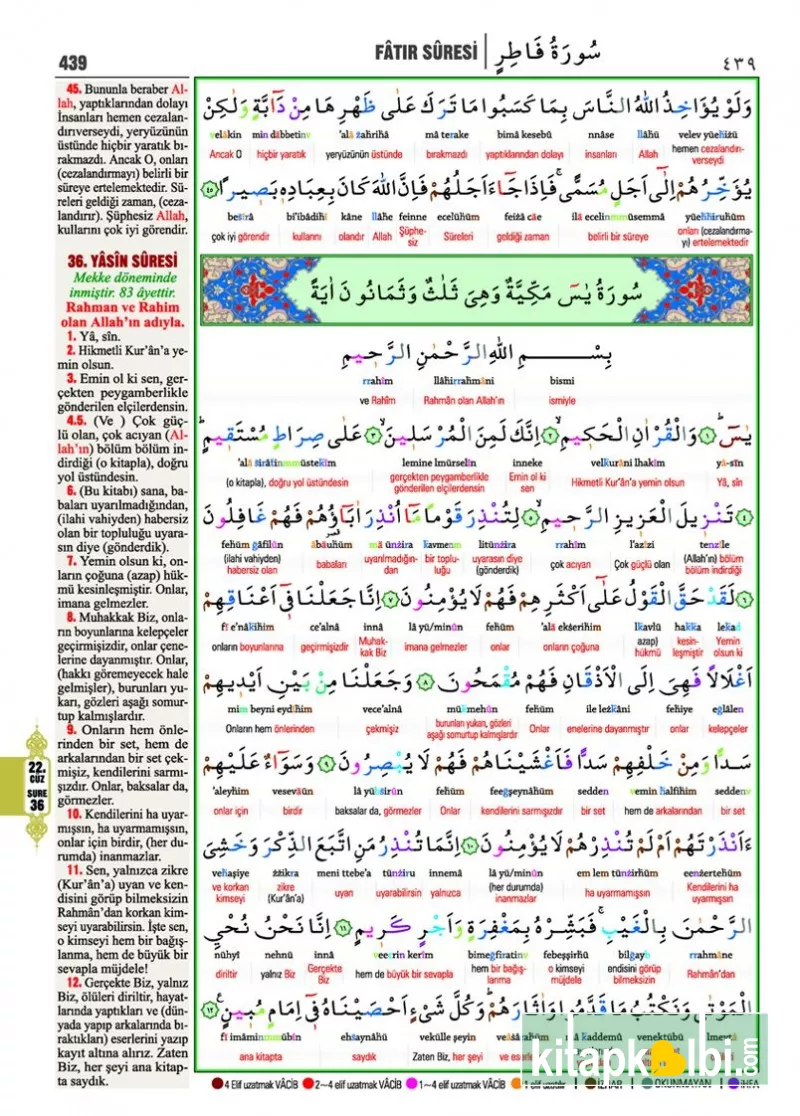 439
FÂTIR SÛRESİ
سُورَةُ فَاطِرٍ
٤٣٩
45. Bununla beraber Al-
lah, yaptıklarından dolayı
İnsanları hemen cezalan-
dırıverseydi, yeryüzünün
üstünde hiçbir yaratık bı-
rakmazdı. Ancak O, onları
(cezalandırmayı) belirli bir
süreye ertelemektedir. Sü-
releri geldiği zaman, (ceza-
landırır). Şüphesiz Allah,
kullarını çok iyi görendir.
36. YÂSÎN SÛRESİ
Mekke döneminde
inmiştir. 83 âyettir.
Rahman ve Rahim
olan Allah'ın adıyla.
1. Yâ, sîn.
2. Hikmetli Kur'ân'a ye-
min olsun.
3. Emin ol ki sen, ger-
çekten peygamberlikle
gönderilen elçilerdensin.
4.5. (Ve ) Çok güç-
lü olan, çok acıyan (Al-
lah'ın) bölüm bölüm in-
dirdiği (o kitapla), doğru
yol üstündesin.
6. (Bu kitabı) sana, ba-
baları uyarılmadığından,
(ilahi vahiyden) habersiz
olan bir topluluğu uyara-
sın diye (gönderdik).
7. Yemin olsun ki, on-
ların çoğuna (azap) hük-
mü kesinleşmiştir. Onlar,
imana gelmezler.
8. Muhakkak Biz, onla-
rın boyunlarına kelepçeler
geçirmişizdir, onlar çene-
lerine dayanmıştır. Onlar,
(hakkı göremeyecek hale
gelmişler), burunları yu-
karı, gözleri aşağı somur-
tup kalmışlardır.
9. Onların hem önle-
rinden bir set, hem de
arkalarından bir set çek-
mişiz, kendilerini sarmı-
şızdır. Onlar, baksalar da,
görmezler.
10. Kendilerini ha uyar-
mışsın, ha uyarmamışsın,
onlar için birdir, (her du-
rumda) inanmazlar.
11. Sen, yalnızca zikre
(Kur'ân'a) uyan ve ken-
disini görüp bilmeksizin
Rahmân'dan korkan kim-
seyi uyarabilirsin. İşte sen,
o kimseyi hem bir bağış-
lanma, hem de büyük bir
sevapla müjdele!
12. Gerçekte Biz, yalnız
Biz, ölüleri diriltir, hayat-
larında yaptıkları ve (dün-
yada yapıp arkalarında bı-
raktıkları) eserlerini yazıp
kayıt altına alırız. Zaten
Biz, her şeyi ana kitap-
ta saydık.
22.
CÜZ
SURE
36
وَلَوْ يُؤَاخِذُ اللّٰهُ النَّاسَ بِمَا كَسَبُوا مَا تَرَكَ عَلٰى ظَهْرِهَا مِنْ دَٓابَّةٍ وَلٰكِنْ
velâkin min dâbbetinv 'alâ zahrihâ mâ terake bimâ kesebû nnâse llâhü velev yüehizü
Ancak O hiçbir yaratık yeryüzünün üstünde bırakmazdı yaptıklarından dolayı insanları Allah hemen cezalandırı-
verseydi
يُؤَخِّرُهُمْ اِلٰٓى اَجَلٍ مُسَمًّىۚ فَاِذَا جَٓاءَ اَجَلُهُمْ فَاِنَّ اللّٰهَ كَانَ بِعِبَادِهِ بَصِيرًا ٤٥
beśîrâ bi'ibâdihî kâne llâhe feinne ecelühüm feizâ câe ilâ ecelinmmüsemma yüehhiruhüm
çok iyi görendir kullarını olandır Allah Şüphe-
siz Süreleri geldiği zaman belirli bir süreye onları (cezalandırma-
yı) ertelemektedir
سُورَةُ يٰسٓ مَكِّيَّةٌ وَهِىَ ثَلٰثٌ وَثَمَانُونَ اٰيَةً
بِسْمِ اللّٰهِ الرَّحْمٰنِ الرَّحِيمِ
rrahîm llâhirrahmâni bismi
ve Rahîm Rahmân olan Allah'ın ismiyle
يٰسٓ ١ وَالْقُرْاٰنِ الْحَكِيمِ ٢ اِنَّكَ لَمِنَ الْمُرْسَلِينَ ٣ عَلٰى صِرَاطٍ مُسْتَقِيمٍ
'alâ śirâtinmmüstekîm lemine lmürselîn inneke velkurâni lhakîm yâ-sîn
(o kitapla), doğru yol üstündesin gerçekten peygamberlikle
gönderilen elçilerdensin Emin ol ki
sen Hikmetli Kur'ân'a yemin olsun Yâ, sîn
٤ تَنْزِيلَ الْعَزِيزِ الرَّحِيمِ ٥ لِتُنْذِرَ قَوْمًا مَٓا اُنْذِرَ اٰبَٓاؤُهُمْ فَهُمْ غَافِلُونَ
fehüm ğâfilûn âbâuhüm mâ ünzira kavmenm litünzira rrahîm l'azîzi tenzîle
(ilahi vahiyden)
habersiz olan babaları uyarılmadığın-
dan bir toplu-
luğu uyarasın diye
(gönderdik) çok acıyan Çok güçlü olan (Allah'ın) bölüm
bölüm indirdiği
٦ لَقَدْ حَقَّ الْقَوْلُ عَلٰٓى اَكْثَرِهِمْ فَهُمْ لَا يُؤْمِنُونَ ٧ اِنَّا جَعَلْنَا فِٓى اَعْنَاقِهِمْ
fî e'nâkihim ce'alnâ innâ lâ yü/minûn fehüm 'alâ ekserihim lkavlü hakka lekad
onların boyunlarına geçirmişizdir Muhak-
kak Biz imana gelmezler onlar onların çoğuna azap)
hükmü kesin-
leşmiştir Yemin
olsun ki
اَغْلَالًا فَهِىَ اِلَى الْاَذْقَانِ فَهُمْ مُقْمَحُونَ ٨ وَجَعَلْنَا مِنْ بَيْنِ اَيْدِيهِمْ
mim beyni eydîhim vece'alnâ mükmehûn fehüm ile lezkâni fehiye eğlâlen
Onların hem önlerinden çekmişiz burunları yukarı, gözleri
aşağı somurtup kalmışlardır Onlar enelerine dayanmıştır onlar kelepçeler
سَدًّا وَمِنْ خَلْفِهِمْ سَدًّا فَاَغْشَيْنَاهُمْ فَهُمْ لَا يُبْصِرُونَ ٩ وَسَوَٓاءٌ عَلَيْهِمْ
'aleyhim vesevâün lâ yübśirûn fehüm feeğşeynâhüm sedden vemin halfihim seddenv
onlar için birdir baksalar da, görmezler Onlar kendilerini sarmışızdır bir set hem de arkalarından bir set
ءَاَنْذَرْتَهُمْ اَمْ لَمْ تُنْذِرْهُمْ لَا يُؤْمِنُونَ ١٠ اِنَّمَا تُنْذِرُ مَنِ اتَّبَعَ الذِّكْرَ وَخَشِىَ
vehaşiye zzikra meni ttebe'a tünziru innemâ lâ yü/minûn em lem tünzirhüm eenzertehüm
ve korkan
kimseyi zikre
(Kur'ân'a) uyan uyarabilirsin yalnızca (her durumda)
inanmazlar ha uyarmamışsın Kendilerini ha
uyarmışsın
الرَّحْمٰنَ بِالْغَيْبِۚ فَبَشِّرْهُ بِمَغْفِرَةٍ وَاَجْرٍ كَرِيمٍ ١١ اِنَّا نَحْنُ نُحْيِ
nühyi nehnü innâ veecrin kerîm bimeğfiratinv febeşşirhü bilğayb rrahmâne
diriltir yalnız Biz Gerçekte
Biz hem de büyük bir sevapla hem bir bağış-
lanma o kimseyi
müjdele endisini görüp
bilmeksizin Rahmân'dan
الْمَوْتٰى وَنَكْتُبُ مَا قَدَّمُوا وَاٰثَارَهُمْ وَكُلَّ شَىْءٍ اَحْصَيْنَاهُ فِٓى اِمَامٍ مُبِينٍ ١٢
fî imâminmmübîn ehsaynâhü vekülle şeyin mâ kaddemû venektübü lmevtâ
ana kitapta saydık Zaten Biz, her şeyi
kitapkolbi.com
4 Elif uzatmak VÂCİB 2~4 elif uzatmak VÂCİB 1~4 elif uzatmak VÂCİB 1 elif uzatılır İZHAR OKUNMAYAN İHFA